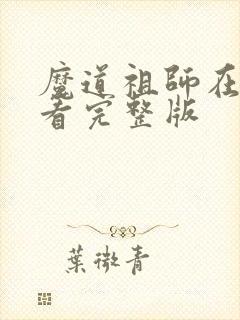 魔道祖師在
看完整版
葉微青